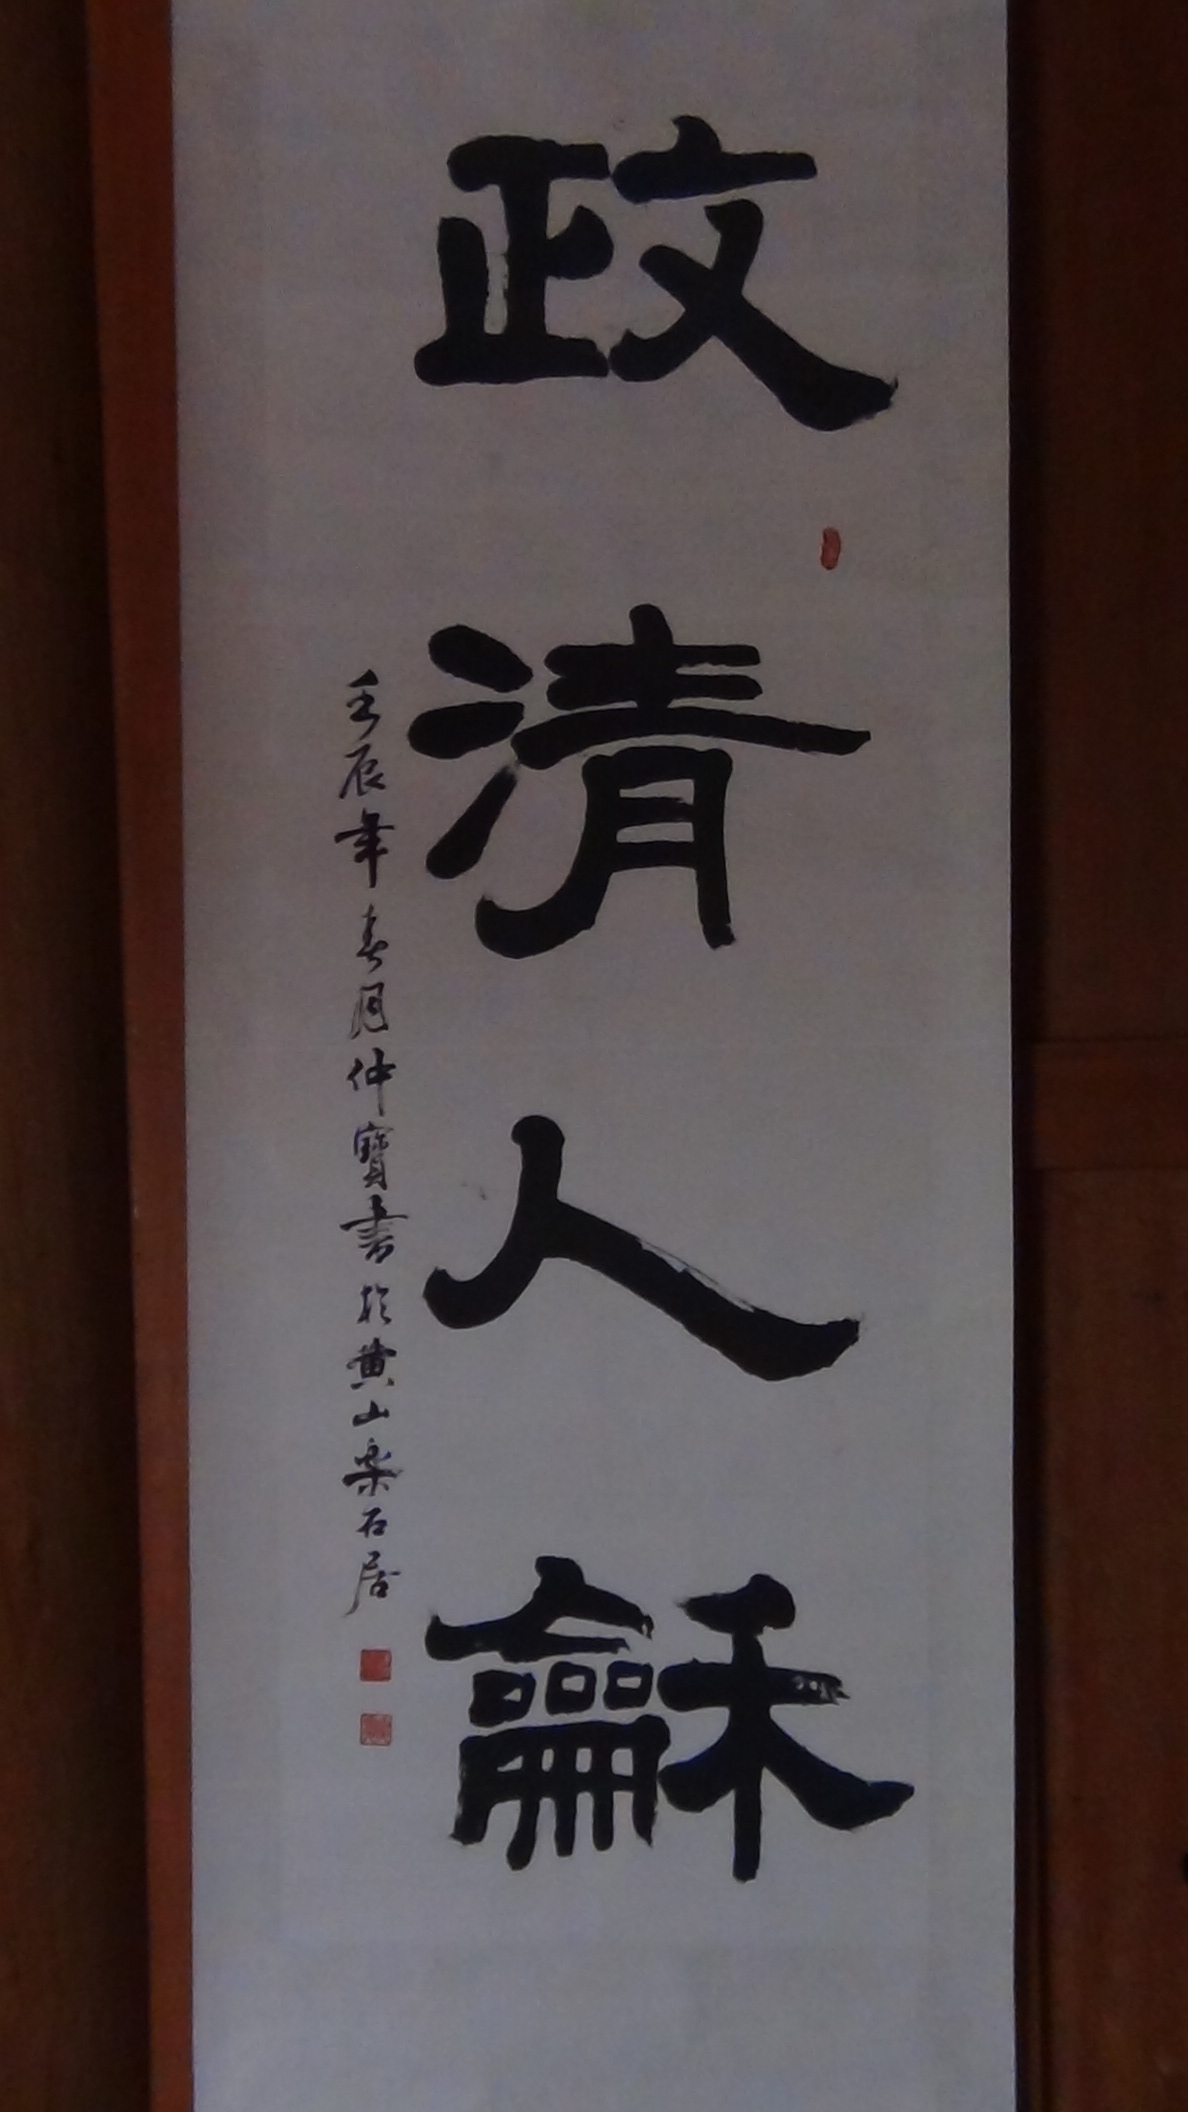 政清人龢
壬辰年春月仲寶書於黄山樂石居